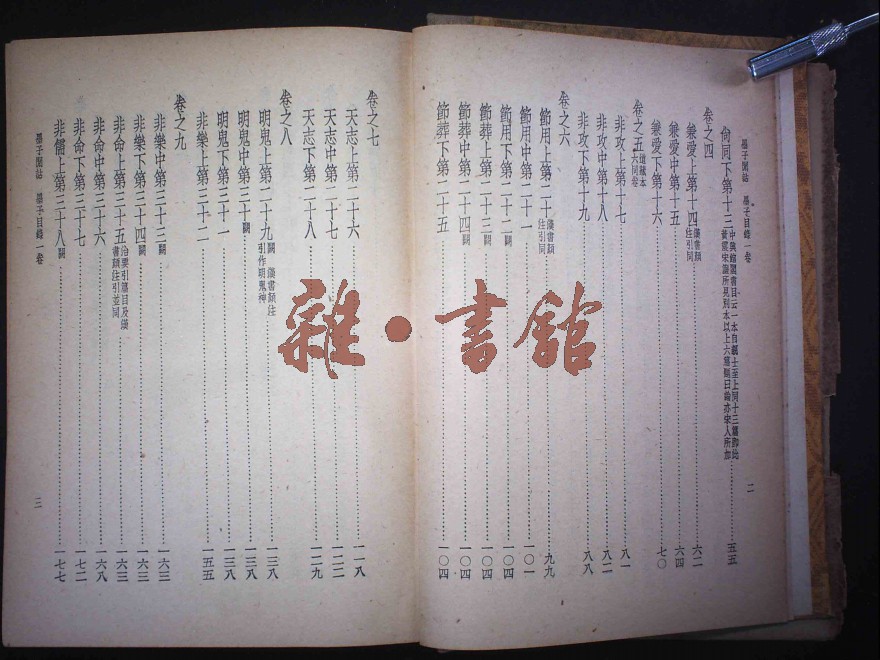 墨子閒詁 墨子目錄一卷 二
尙同下第十三 中興館閣書目云一本自親士至上同十三篇卽此 黃震宋濂所見別本以上六篇題曰論亦宋人所加 五五
卷之四
兼愛上第十四 漢書顏注引同 六二
兼愛中第十五 六四
兼愛下第十六 七〇
卷之五 道藏本六同卷
非攻上第十七 八一
非攻中第十八 八二
非攻下第十九 八八
卷之六
節用上第二十 漢書顏注引同 九九
節用中第二十一 一〇一
節用下第二十二 闕 一〇四
節葬上第二十三 闕 一〇四
節葬中第二十四 闕 一〇四
節葬下第二十五 一〇四
卷之七
天志上第二十六 一一八
天志中第二十七 一二二
天志下第二十八 一二九
卷之八
明鬼上第二十九 闕 漢書顏注引作明鬼神 一三八
明鬼中第三十 闕 一三八
明鬼下第三十一 一三八
非樂上第三十二 一五五
卷之九
非樂中第三十三 闕 一六三
非樂下第三十四 闕 一六三
非命上第三十五 治要引篇目及漢書顏注引並同 一六三
非命中第三十六 一六八
非命下第三十七 一七二
非儒上第三十八 闕 一七七
墨子閒詁 墨子目錄一卷 三
雜·書館